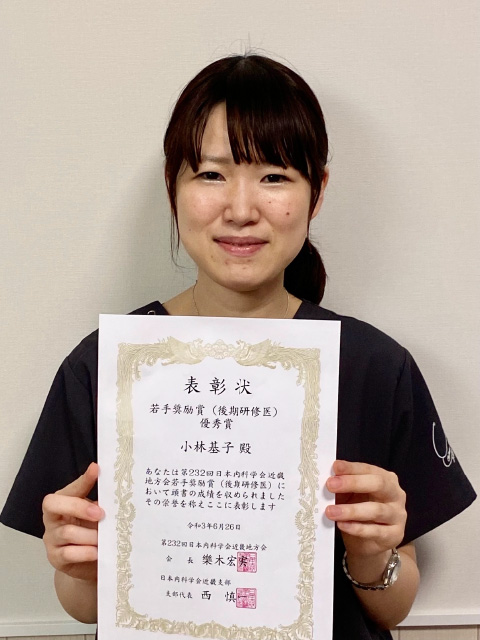 表彰状
若手奨励賞（後期研修医）
優秀賞
小林基子 殿
あなたは第232回日本内科学会近畿
地方会若手奨励賞（後期研修医）に
おいて頭書の成績を収められました
その栄誉を称えここに表彰します
令和3年6月26日
第232回日本内科学会近畿地方会
会 長 樂木宏実
日本内科学会近畿支部
支部代表 西 慎一